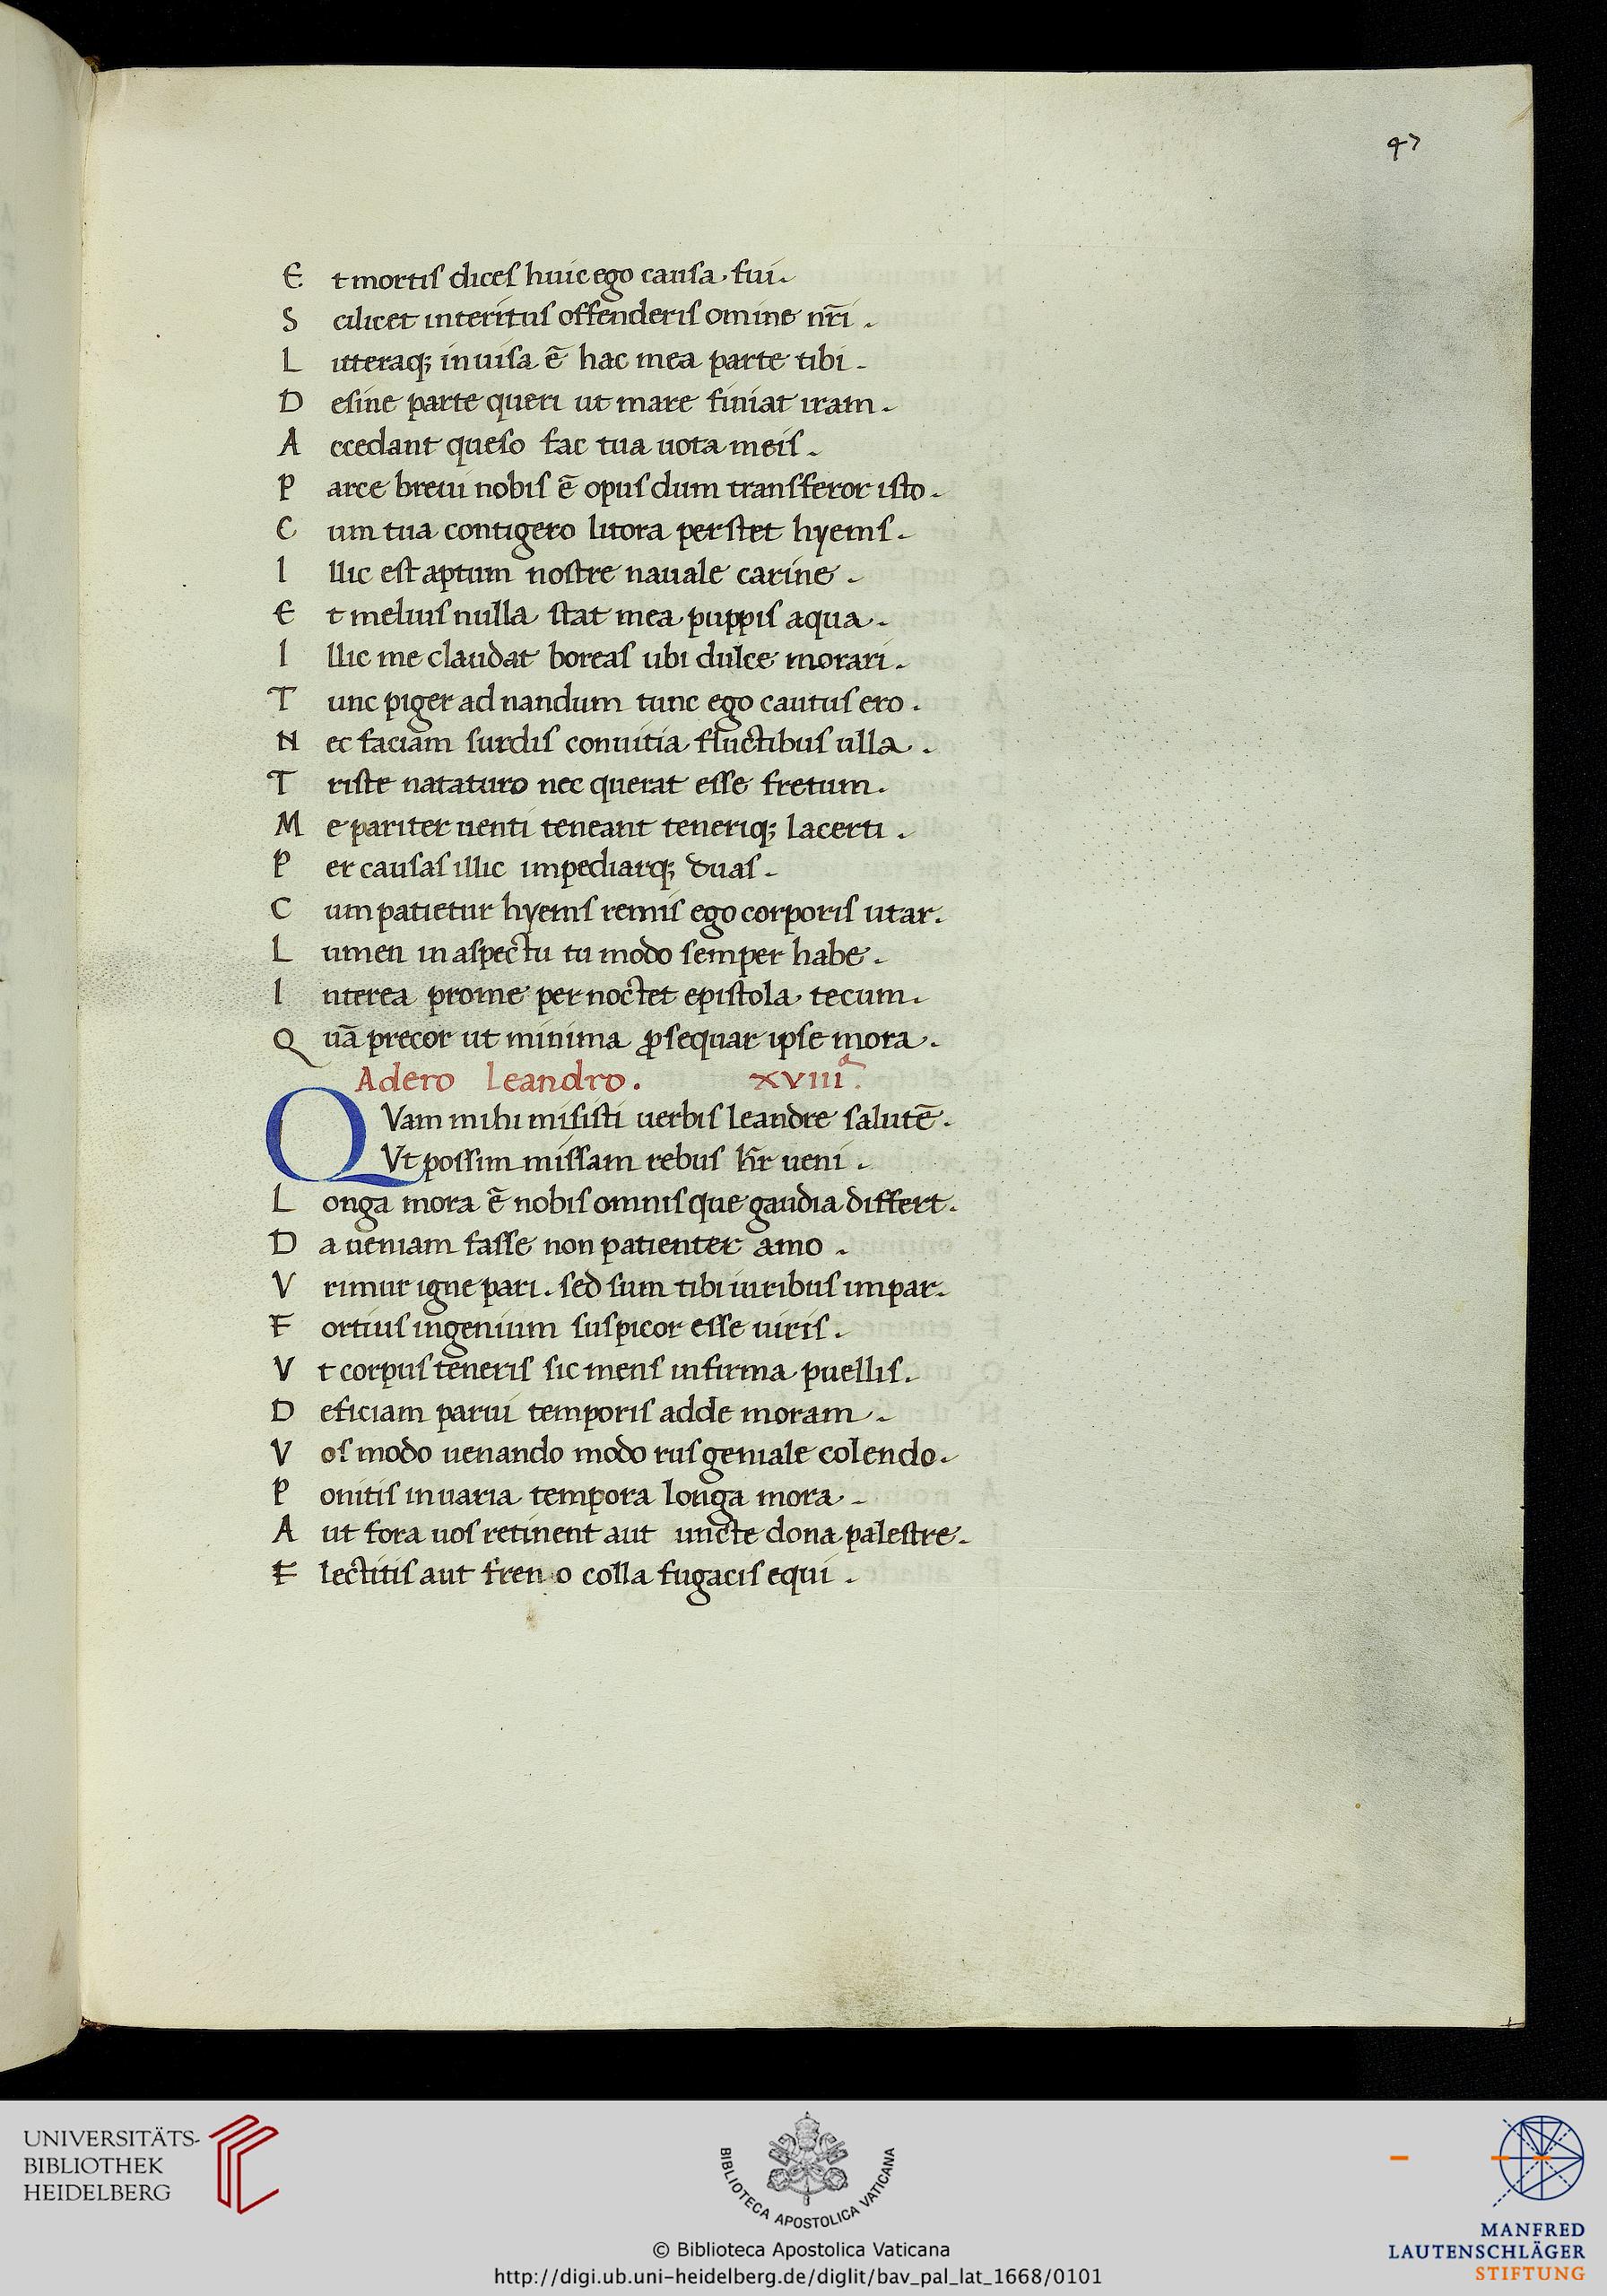 47
E t mortis dices huic ego causa fui.
S cilicet interitus offenderis omine nr̄i .
L itteraq; inuisa ē hac mea parte tibi .
D esine parte queri ut mare finiat iram .
A ccedant queso fac tua uota meis .
P arce breui nobis ē opus dum transferor isto .
C um tua contigero litora perstet hyems .
I llic est aptum nostre nauale carine .
E t melius nulla stat mea puppis aqua .
I llic me claudat boreas ubi dulce morari .
T unc piger ad nandum tunc ego cautus ero .
N ec faciam surdis conuitia fluctibus ulla .
T riste nataturo nec querat esse fretum .
M e pariter uenti teneant teneriq; lacerti .
P er causas illic impediarq; duas .
C um patietur hyems remis ego corporis utar .
L umen in aspectu tu modo semper habe .
I nterea prome pernoctet epistola tecum .
Q uā precor ut minima ꝓsequar ipse mora .
Adero Leandro . xviiiª.
QVam mihi misisti uerbis leandre salutē .
Vt possim missam rebus hr̄e ueni .
L onga mora ē nobis omnis que gaudia differt .
D a ueniam fasse non patienter amo .
V rimur igne pari . sed sum tibi uiribus impar .
F ortius ingenium suspicor esse uiris .
V t corpus teneris sic mens infirma puellis .
D eficiam parui temporis adde moram .
V os modo uenando modo rus geniale colendo .
P onitis in uaria tempora longa mora .
A ut fora uos retinent aut uncte dona palestre .
F lectitis aut freno colla fugacis equi .
UNIVERSITÄTS-
BIBLIOTHEK
HEIDELBERG
BIBLIOTECA APOSTOLICA VATICANA
© Biblioteca Apostolica Vaticana
http://digi.ub.uni-heidelberg.de/diglit/bav_pal_lat_1668/0101
MANFRED
LAUTENSCHLÄGER
STIFTUNG